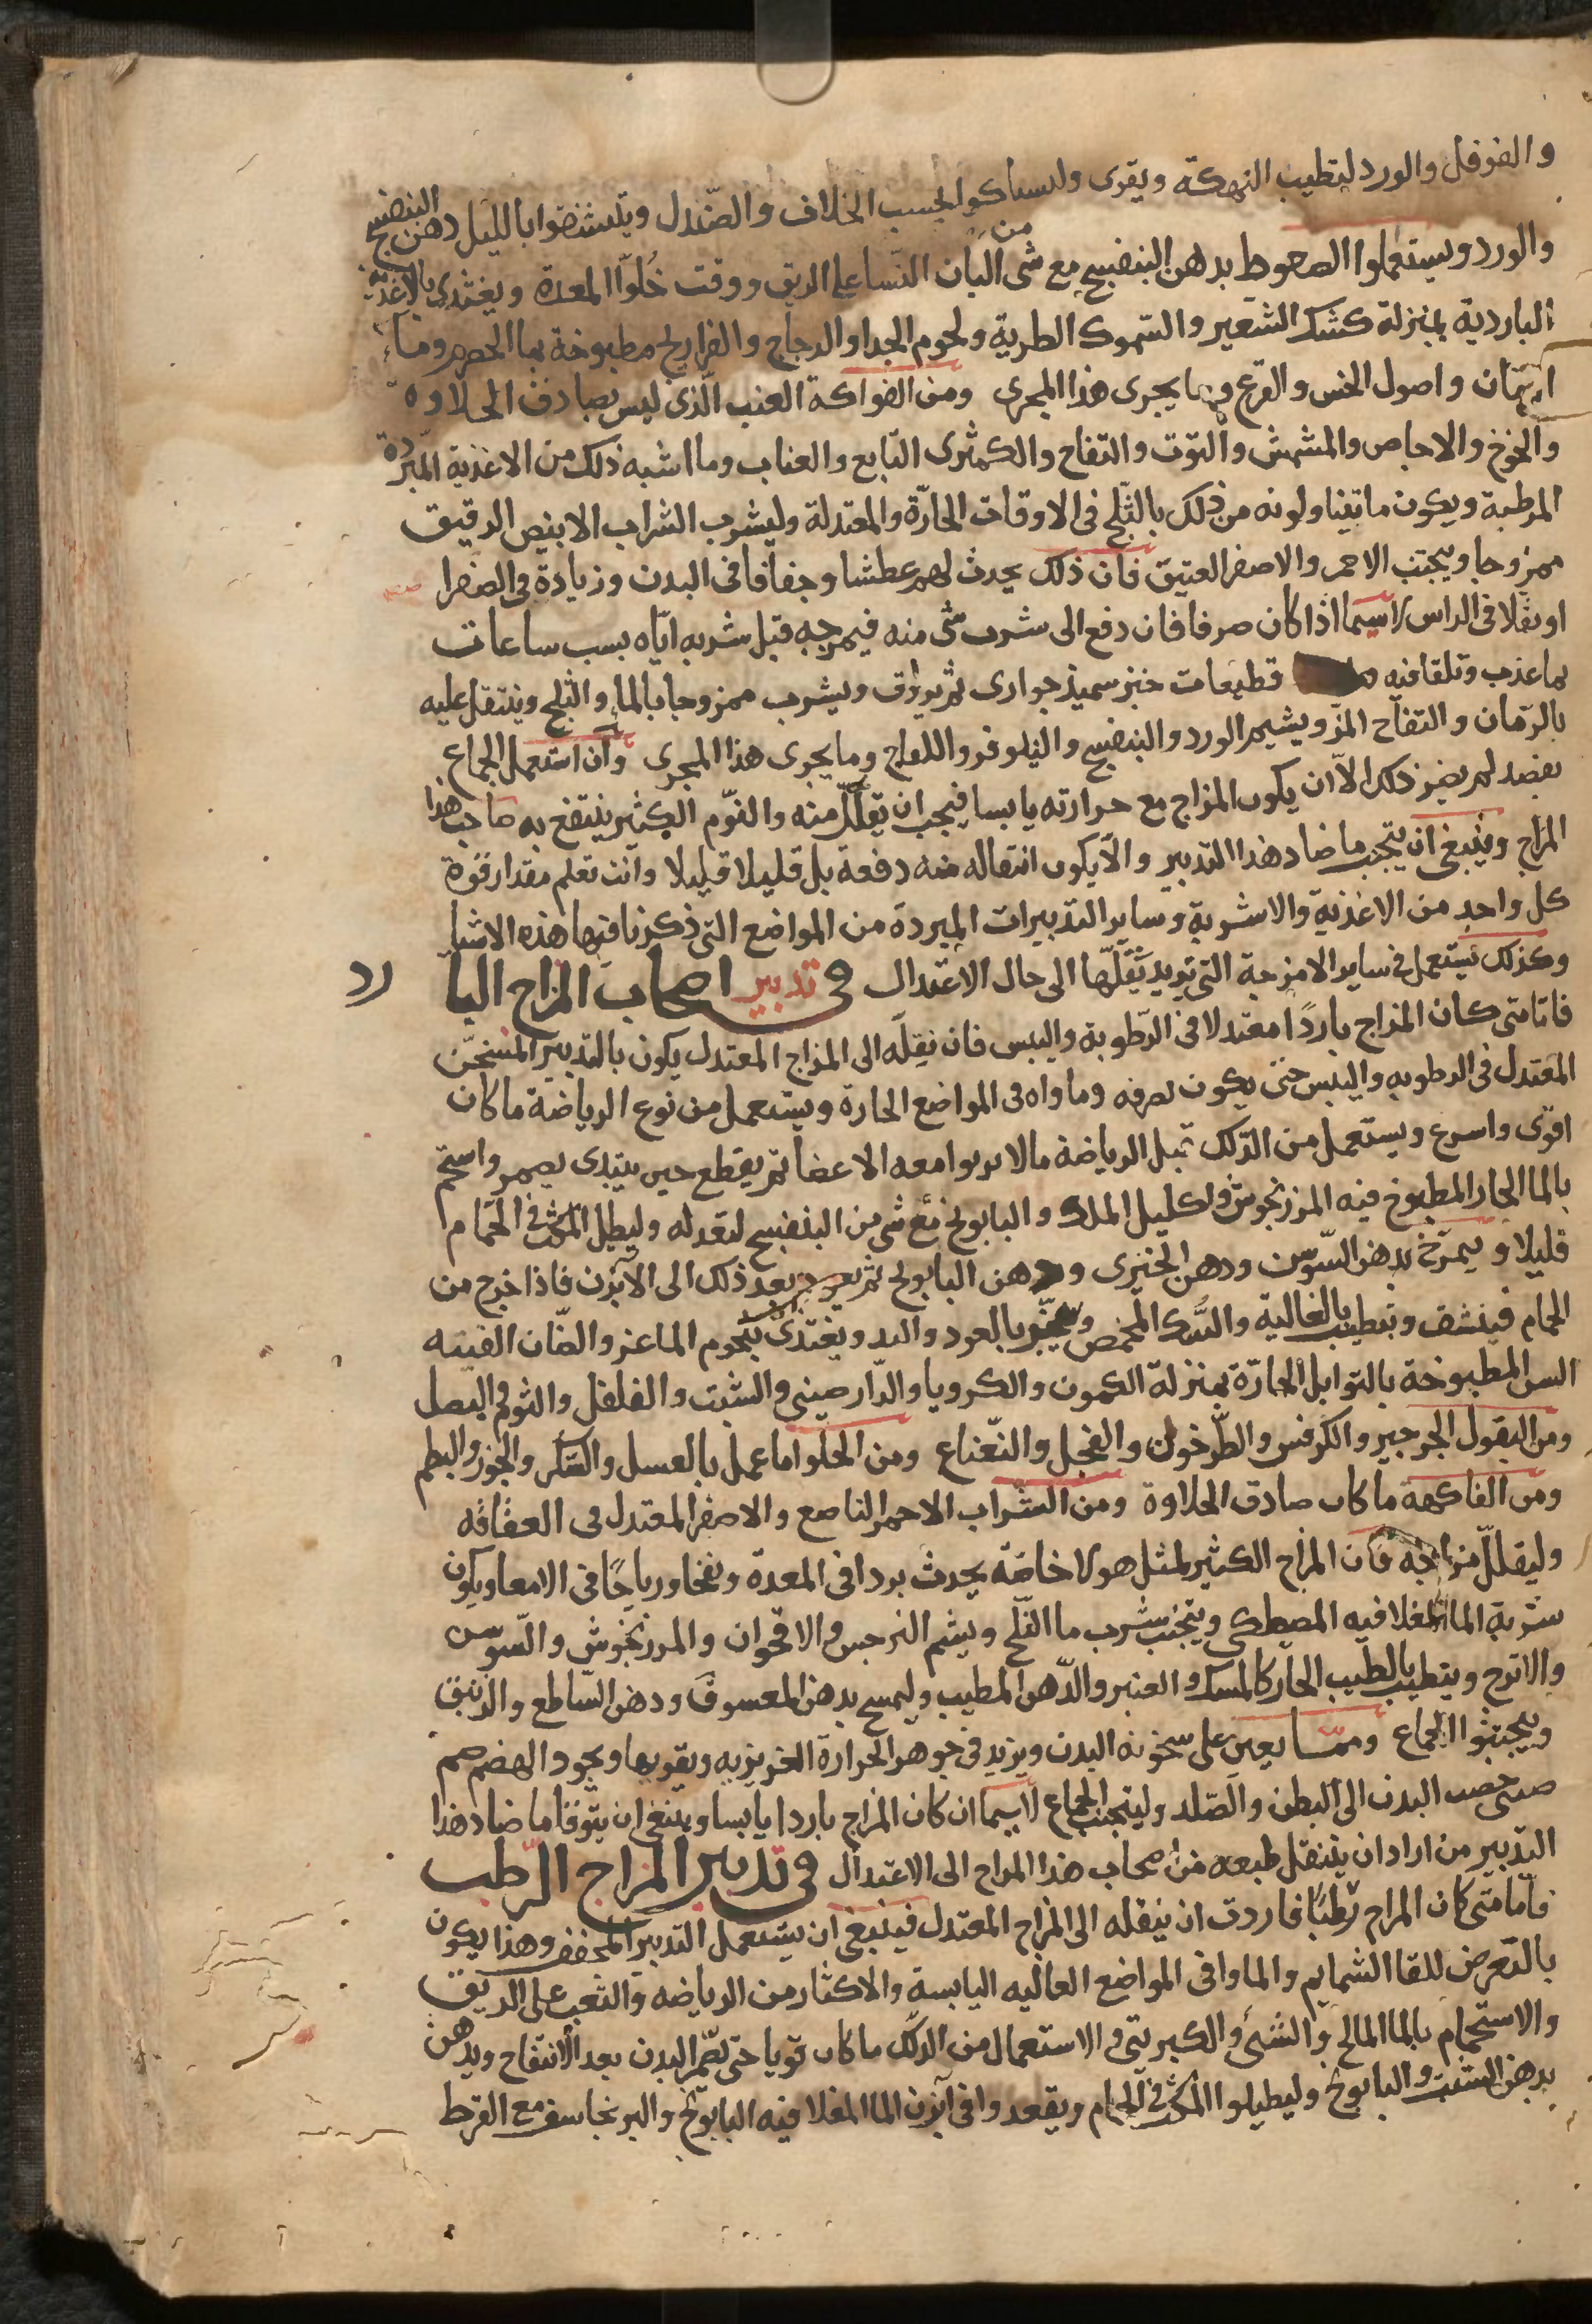 والفوفل والورد لتطيب النهكة ويقوى وليستاكوا بخسب الخلاف والصندل ويتسنشقوا بالليل دهن البنفسج
والورد ويستعملوا الصعوط بدهن البنفسج مع شى من البان النسا على الريق ووقت خلوا المعدة ويغتدى بالاغذية
الباردية بمنزلة كشك الشعير والسموك الطرية ولحوم الجدا والدجاج والفراريج مطبوخة بما الحصرم وماء
الرمان واصول الخس والقرع وما يجرى هذا المجرى ومن الفواكة العنب الذى ليس بصادق الحلاوه
والخوخ والاجاص والمشمش والتوت والتفاح والكمثرى التابع والعناب وما اشبه ذلك من الاغذية المبردة
المرطبة ويكون ما يتناولونه من ذلك بالثلج فى الاوقات الحارة والمعتدلة وليشرب الشراب الابيض الرقيق
ممزوجا ويجتنب الاحمر والاصفر العتيق فان ذلك يحدث لهم عطشا وجفافا فى البدن وزيادة فى الصفرا
او ثقلا فى الراس لاسيما اذا كان صرفا فان دفع الى شرب شى منه فيمزجه قبل شربه اياه بسب ساعات
بما عذب وتلقا فيه قطيعات خبز سميذ جوارى ثم يروق ويشرب ممزوجا بالما والثلج وينتقل عليه
بالرمان والتفاح المز ويشيم الورد والبنفسج والنيلوفر واللفاح وما يجرى هذا المجرى وان استعمل الجماع
بقصد لم يضر ذلك الا ان يكون المزاج مع حرارته يابسا فيجب ان يتقلل منه والنوم الكثير ينتفع به صاحب هذا
المزاج وينبغى ان يتجنب ما ضاد هذا التدبير والا يكون انتقاله منه دفعة بل قليلا قليلا وانت تعلم مقدار قوة
كل واحد من الاغذية والاشربة وساير التدبيرات المبردة من المواضع التى ذكرنا فيها هذه الاشيا
وكذلك تستعمل فى ساير الامزجة التى تريد تنقلها الى حال الاعتدال فى تدبير اصحاب المزاج البارد
فامّا متى كان المزاج باردا معتدلا فى الرطوبة واليبس فان نقله الى المزاج المعتدل يكون بالتدبير المسخن
المعتدل فى الرطوبه واليبس حتى يكون تصرفه وماواه فى المواضع الحارة ويستعمل من نوع الرياضة ما كان
اقوى واسرع ويستعمل من الدلك قبل الرياضة ما لا يربوا معه الاعضا ثم يقطع حين يبتدى يضمر واستحم
بالما الحار المطبوخ فيه المرزنجوش واكليل الملك والبابونج مع شى من البنفسج لتعدله وليطل المكث فى الحمام
قليلا ويمرخ بدهن السوسن ودهن الخيرى ودهن البابونج ثم يعود بعد ذلك الى الآبزن فاذا خرج من
الحمام فينشف ويتطيب بالغالية والسك المحمص ويتبخر بالعود والند ويغتذى بلحوم الماعز والضان الفتيه
السن المطبوخة بالتوابل الحارة بمنزلة الكمون والكرويا والدارصينى والشبت والفلفل والثوم والبصل
ومن البقول الجرجير والكرفس والطرخون والفجل والنعناع ومن الحلوا ما عمل بالعسل والسكر والجوز والبطم
ومن الفاكهة ما كان صادق الحلاوة ومن الشراب الاحمر الناصع والاصفر المعتدل فى العتاقه
وليقلل مزاجه فان المزاج الكثير لمثل هولا خاصة يحدث بردا فى المعدة ونفخا ورياحا فى الامعا ويكون
شربة الما المغلا فيه المصطكى ويتجنب شرب ما الثلج ويشم النرجس والاقحوان والمرزنجوش والسوسن
والاترج ويتطيب بالطيب الحار كالمسك والعنبر والدهن المطيب وليمسح بدهن المعسوق ودهن الساطع والزنبق
ويجتنبوا الجماع ومما يعين على سخونة البدن ويزيد فى جوهر الحرارة الغريزيه ويقويها ويجود الهضم ضم
صبى خصب البدن الى البطن والصلد وليتجنب الجماع لاسيما ان كان المزاج باردا يابسا وينبغى ان يتوقا ما ضاد هذا
التدبير من اراد ان ينتقل طبعه من اصحاب هذا المزاج الى الاعتدال فى تدبير المزاج الرطب
فاما متى كان المزاج رطبا فاردت ان ينقله الى المزاج المعتدل فينبغى ان يستعمل التدبير المجفف وهذا يكون
بالتعرض للقا الشمايم والماوا فى المواضع العاليه اليابسة والاكثار من الرياضه والتعب على الريق
والاستحمام بالما المالح والشبى والكبريتى والاستعمال من الدلك ما كان قويا حتى يضمر البدن بعد الانتفاح ويدهن
بدهن الشبت والبابونج وليطيلوا المكث فى الحمام ويقعدوا فى آبزن الما المغلا فيه البابونج والبرنجاسف مع القرط